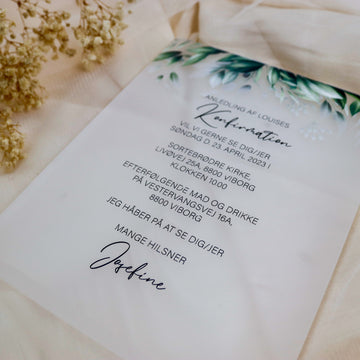 ANLEDNING AF LOUISES
Konfirmation
VIL VI GERNE SE DIG/JER
SØNDAG D. 23. APRIL 2023 I
SORTEBRØDRE KIRKE,
LIVØVEJ 25A, 8800 VIBORG
KLOKKEN 10.00
EFTERFØLGENDE MAD OG DRIKKE
PÅ VESTERVANGSVEJ 16A,
8800 VIBORG
JEG HÅBER PÅ AT SE DIG/JER
MANGE HILSNER
Josefine